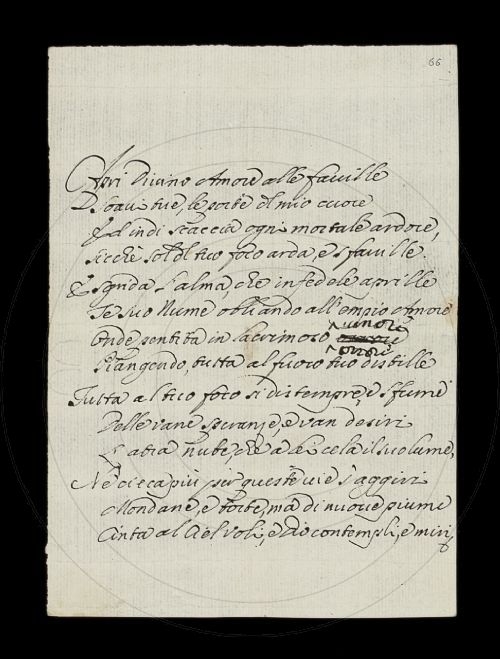 66
Apri Divino Amore alle faville
Di soavi tue, le porte del mio cuore
Ed indi scaccia ogni mortale ardore,
sicchè sol del tuo foco arda, e sfaville.
E sgrida l'alma, che infedele aprille
Te suo Nume obliando all'empio Amore
Onde pentita in lacrimoso umore
orrore
Piangendo, tutta al fuoco tuo distille
Tutta al tuo foco si distempre, e sfumi
Delle vane speranze, e van desiri
L'atra nube, che a lei cela il suo lume,
Nè cieca più per queste vie s'aggiri
Mondane, e torte, ma di nuove piume
Cinta al Ciel voli, e Dio contempli, e miri